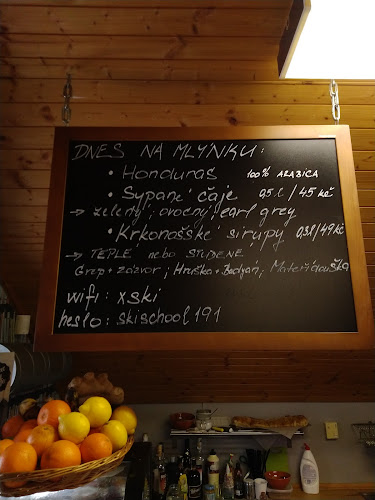 DNES NA MLÝNKU:
• Honduras 100% ARABICA
• Sypané čaje 0,5 l / 45 kč
→ zelený, ovocný, earl grey
• Krkonošské sirupy 0,3 l / 49 kč
→ TEPLÉ nebo STUDENÉ
Grep + zázvor; Hruška + Badyán; Mateřídouška
wifi: xski
heslo: skischool191